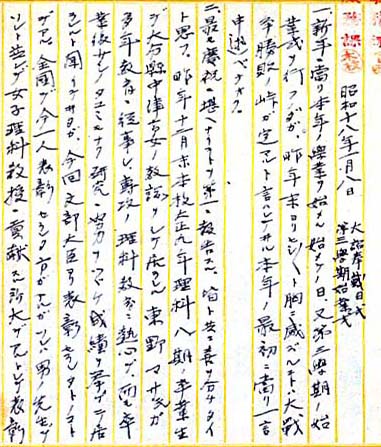 昭和十八年一月八日
大詔奉戴日式
第三學期始業式
一、新年ニ當リ本年ノ學業ヲ始メル始メテノ日又第三學期ノ始
業式ヲ行フノダガ昨年末ヨリヒシヒシト胸ニ感ズルコト、大戰
争勝敗ノ峠ガ定マルト言ハレテヰル本年ノ最初ニ當リ一言
申述ベテオク。
二、最モ慶祝ニ堪ヘナイコトヲ第一ニ報告スル、皆ト共ニ喜ヲ分チタイ
ト思フ、昨年十二月末本校大正九年理科八期ノ卒業生
デ大分縣中津高女ノ教諭ヲシテ居ラレル東野マサエガ
多年教育ニ従事シ專攻ノ理科教育ニ熱心デ、而卒
業後
研究ニ努力ヲツヾケ成績ヲ擧ゲテ居
ラレルト聞イテヰタガ、今回文部大臣ヨリ表彰セラレタトノコト
デアル、全國デ今一人表彰セラレタ方ガアルガソレハ男ノ先生デ
女子理科教授ニ貢獻スル所大デアルトシテ表彰